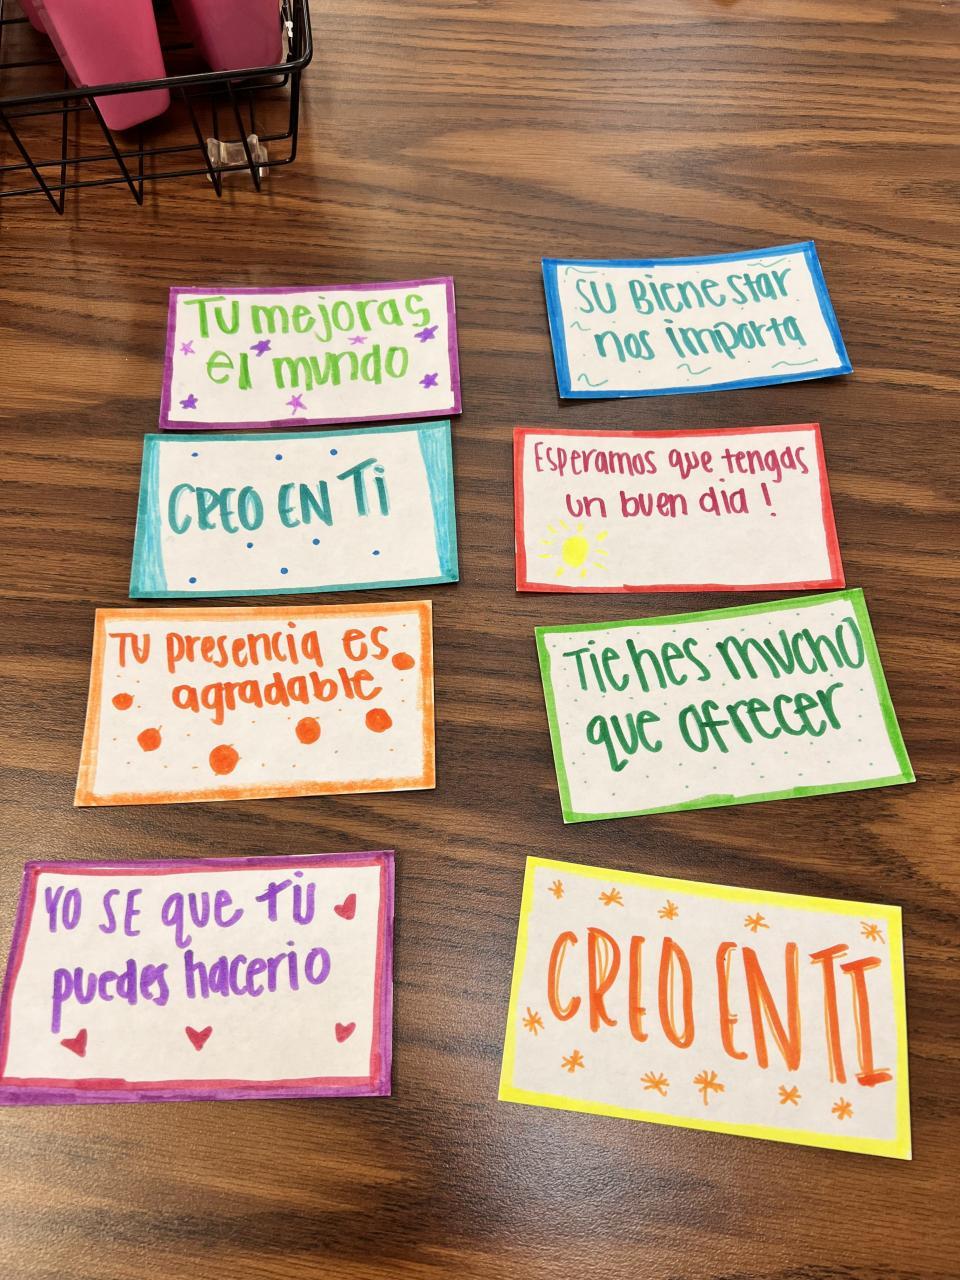 Tu mejoras
el mundo
Su Bienestar
nos importa
CREO EN Ti
Esperamos que tengas
un buen dia !
Tu presencia es
agradable
Tienes mucho
que ofrecer
YO SE que TÚ
puedes hacerio
CREO EN TI